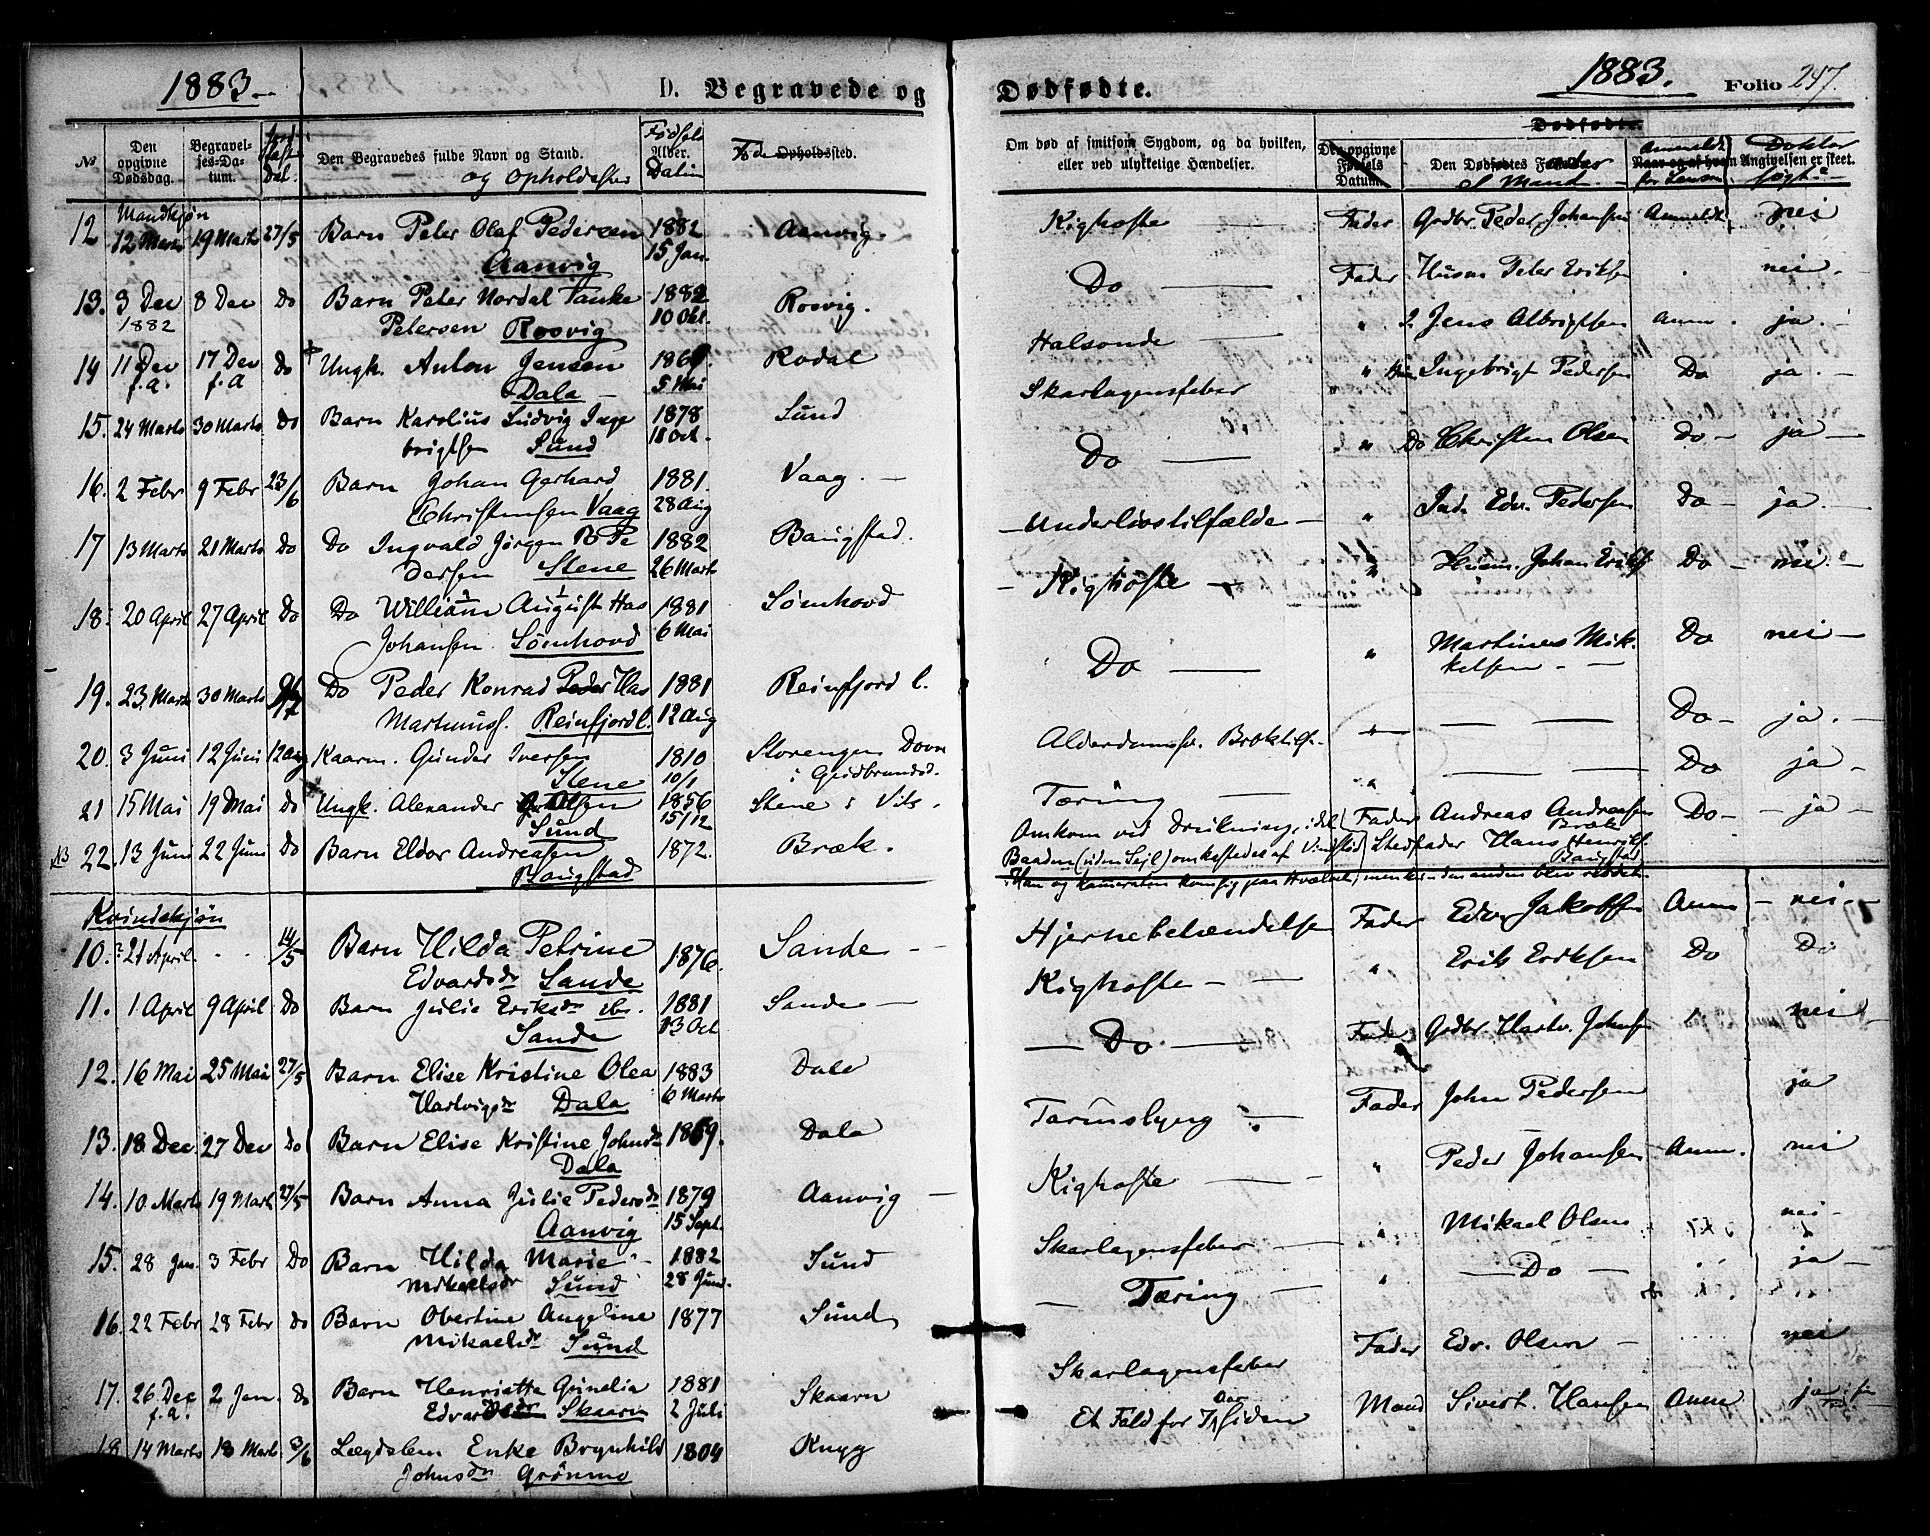 1883.
D. Begravede og
No
Den opgivne Dødsdag.
Begravelses-Datum.
Den Begravedes fulde Navn og Stand.
og Opholdssted
Fødsels Alder. Datum
Føde Opholdssted.
Mandkjøn
12 12 Marts 19 Marts 27/5 Barn Peter Olaf Pedersen 1882 Aanvig.
Aanvig 15 Jan.
13. 3 Dec 8 Dec Do Barn Peter Nordal Tanke 1882 Rosvig.
1882 Petersen Rosvig 10 Okt.
14 11 Dec 17 Dec Do Ungk. Anton Jensen Rodal
f.a. f.a Dala 5 Mai
15. 24 Marts 30 Marts Do Barn Karolius Ludvig Inge 1878 Sund
brigtsen Sund 18 Oct.
16. 2 Febr 9 Febr 23/6 Barn Johan Gerhard 1881. Vaag.
Christensen Vaag 28 Aug
17 13 Marts 21 Marts Do Do Ingvald Jørgen Pe 1882 Bangstad.
dersen Stene 26 Marts
18. 20 April 27 April Do Do William August Has 1881 Sømhovd
Johansen. Sømhovd 6 Mai
19. 23. Marts 30 Marts Do Peder Konrad Peder Has 1881 Reinfjord l.
Martinuss. Reinfjord l. 12 Aug
20. 3 Juni 12 Juni 12 Aug Kaarm. Gunder Iversen 1810 Storengen Dovre
Stene 10/1 i Gudbrandsd.
21 15 Mai 19 Mai Do Ungk. Alexander Olsen 1856 Stene i Vik.
Sund 15/12
22. 13 Juni 22 Juni Do Barn Eldor Andreasen 1872. Bræk.
Bangstad
Kvindekjøn
10. 21 April. 14/5 Barn Hilda Petrine 1876. Sande
Edvardsdr Sande
11. 1 April 9 April Do Barn Julie Eriksdr 1881 Sande
Sande 13 Oct
12. 16 Mai 25 Mai 27/5 Barn Elise Kristine Olea 1883 Dala
Hartvigsdr Dala 6 Marts
13. 18 Dec 27 Dec Do Barn Elise Kristine Johnsdr 1869. Dala
Dala
14. 10 Marts 19 Marts 27/5 Barn Anna Julie Pedersdr 1879 Aanvig
Aanvig 15 Sept.
15. 28 Jan. 3 Febr Do Barn Hilda Marie 1882 Sund
Mikaelsdr Sund 28 Juni.
16. 22 Febr 28 Febr Do Barn Obertine Angeline 1877 Sund
Mikaelsdr Sund
17. 26 Dec 2 Jan. Do Barn Henriette Gunelia 1881 Skaarn
f.a. Edvardsdr Skaarn 2 Juli
18 14 Marts 18 Marts 3/6 Lægdslem Enke Brynhild 1804 Knyg
Johnsdr Grønmo
Dødfødte.
1883. Folio 247.
Dødfødte.
Om død af smitsom Sygdom, og da hvilken, eller ved ulykkelige Hændelser.
Den opgivne Fødsels Datum.
Den Dødfødtes Forældre
Mand
Anmeldt for Lensm
Naar og af hvem Angivelsen er skeet.
Doktor søgt
Kighoste Fader Grdbr Peder Johansen Anmeldt nei
Do Fader Husm Peter Eriksen nei.
Halsonde " Jens Albrigtsen Anm. ja.
Skarlagensfeber " Ingebrigt Pedersen Do ja.
Do " Do Christen Olsen Do ja
Underlivstilfælde " Ind. Edv. Pedersen Do ja.
Kighoste " Husm. Johan Eriks Do nei.
Do " Martines Mik- Do nei
kelsen
Alderdomssv. Broktilf. Do ja.
Tæring " Do ja
Omkom ved Drukning, idet Fader Andreas Andreasen Do ja
Baaden (uden Sejl) omkastedes af Vindstød Stedfader Hans Henrik
Bræk
Bangstad
Han og Kameraten kom sig paa Hvælvet, men kun den anden blev reddet.
Hjernebetændelse Fader Edv Jakobsen Anm nei
Kighoste " Erik Eriksen Do Do
Do. Fader Grdbr Hartv. Johnsen nei
Tarmslyng Fader John Pedersen ja
Kighoste " Peder Johansen Anm. nei
Skarlagensfeber " Mikael Olsen nei
Tæring " Do ja
Skarlagensfeber Fader Edv. Olsen nei
Et Fald for 7 Dar Siden Mand Sivert Hansen Anm ja